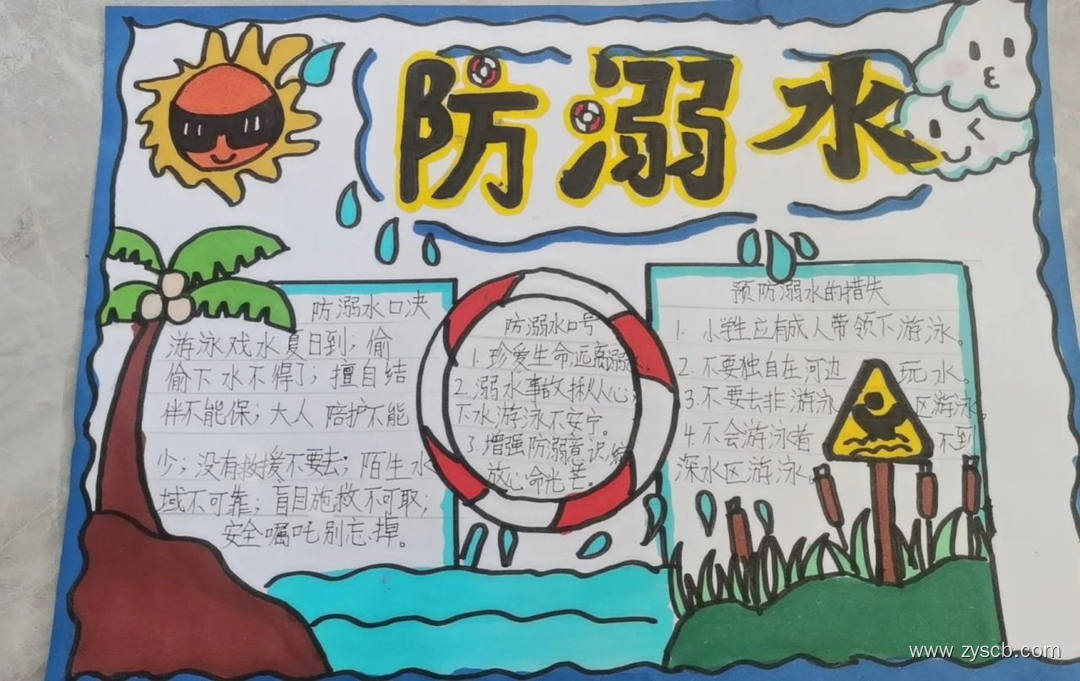 防溺水
防溺水口决
游泳戏水夏日到;偷
偷下水不得了;擅自结
伴不能保;大人陪护不能
少;没有救援不要去;陌生水
域不可靠;盲目施救不可取;
安全嘱吒别忘掉。
防溺水口号
1.珍爱生命,远离溺水
2.溺水事故揪人心;
下水游泳不安宁。
3.增强防溺意识,绽
放心命光芒。
预防溺水的措失
1.小学生应有成人带领下游泳。
2.不要独自在河边 玩水。
3.不要去非游泳 区游泳。
4.不会游泳者 不到
深水区游泳。
www.zyscb.com